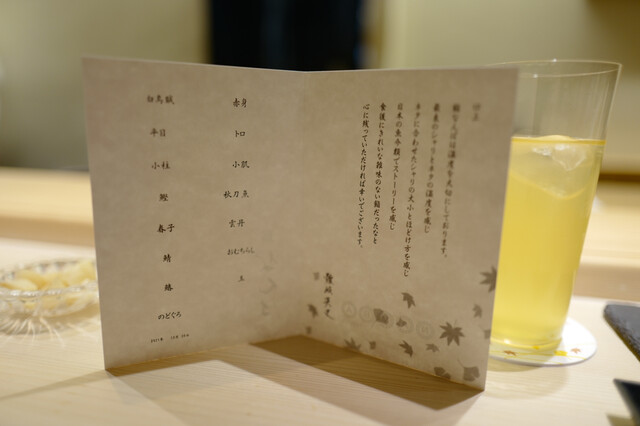 鮨 な んば は温度を大切にしております。
最良のシャリとネタの温度を感じ
ネタに合わせたシャリの大小とほどけ方を感じ
日本の魚介類でストーリーを感じ
食後にきれいな雑味のない鮨だったなと
心に残っていただければ幸いでございます。
赤身
トロ
小肌
秋刀魚
雲丹
おむちらし
玉
白烏賊
平目
小柱
鰹
春子
のどぐろ